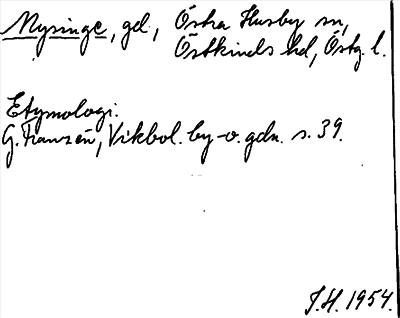 Mysinge, gd., Östra Husby sn,
Östkinds hd, Östg. l.
Etymologi.
G. Franzén, Vikbol. by- o. gdn. s. 39.
J.H. 1954.